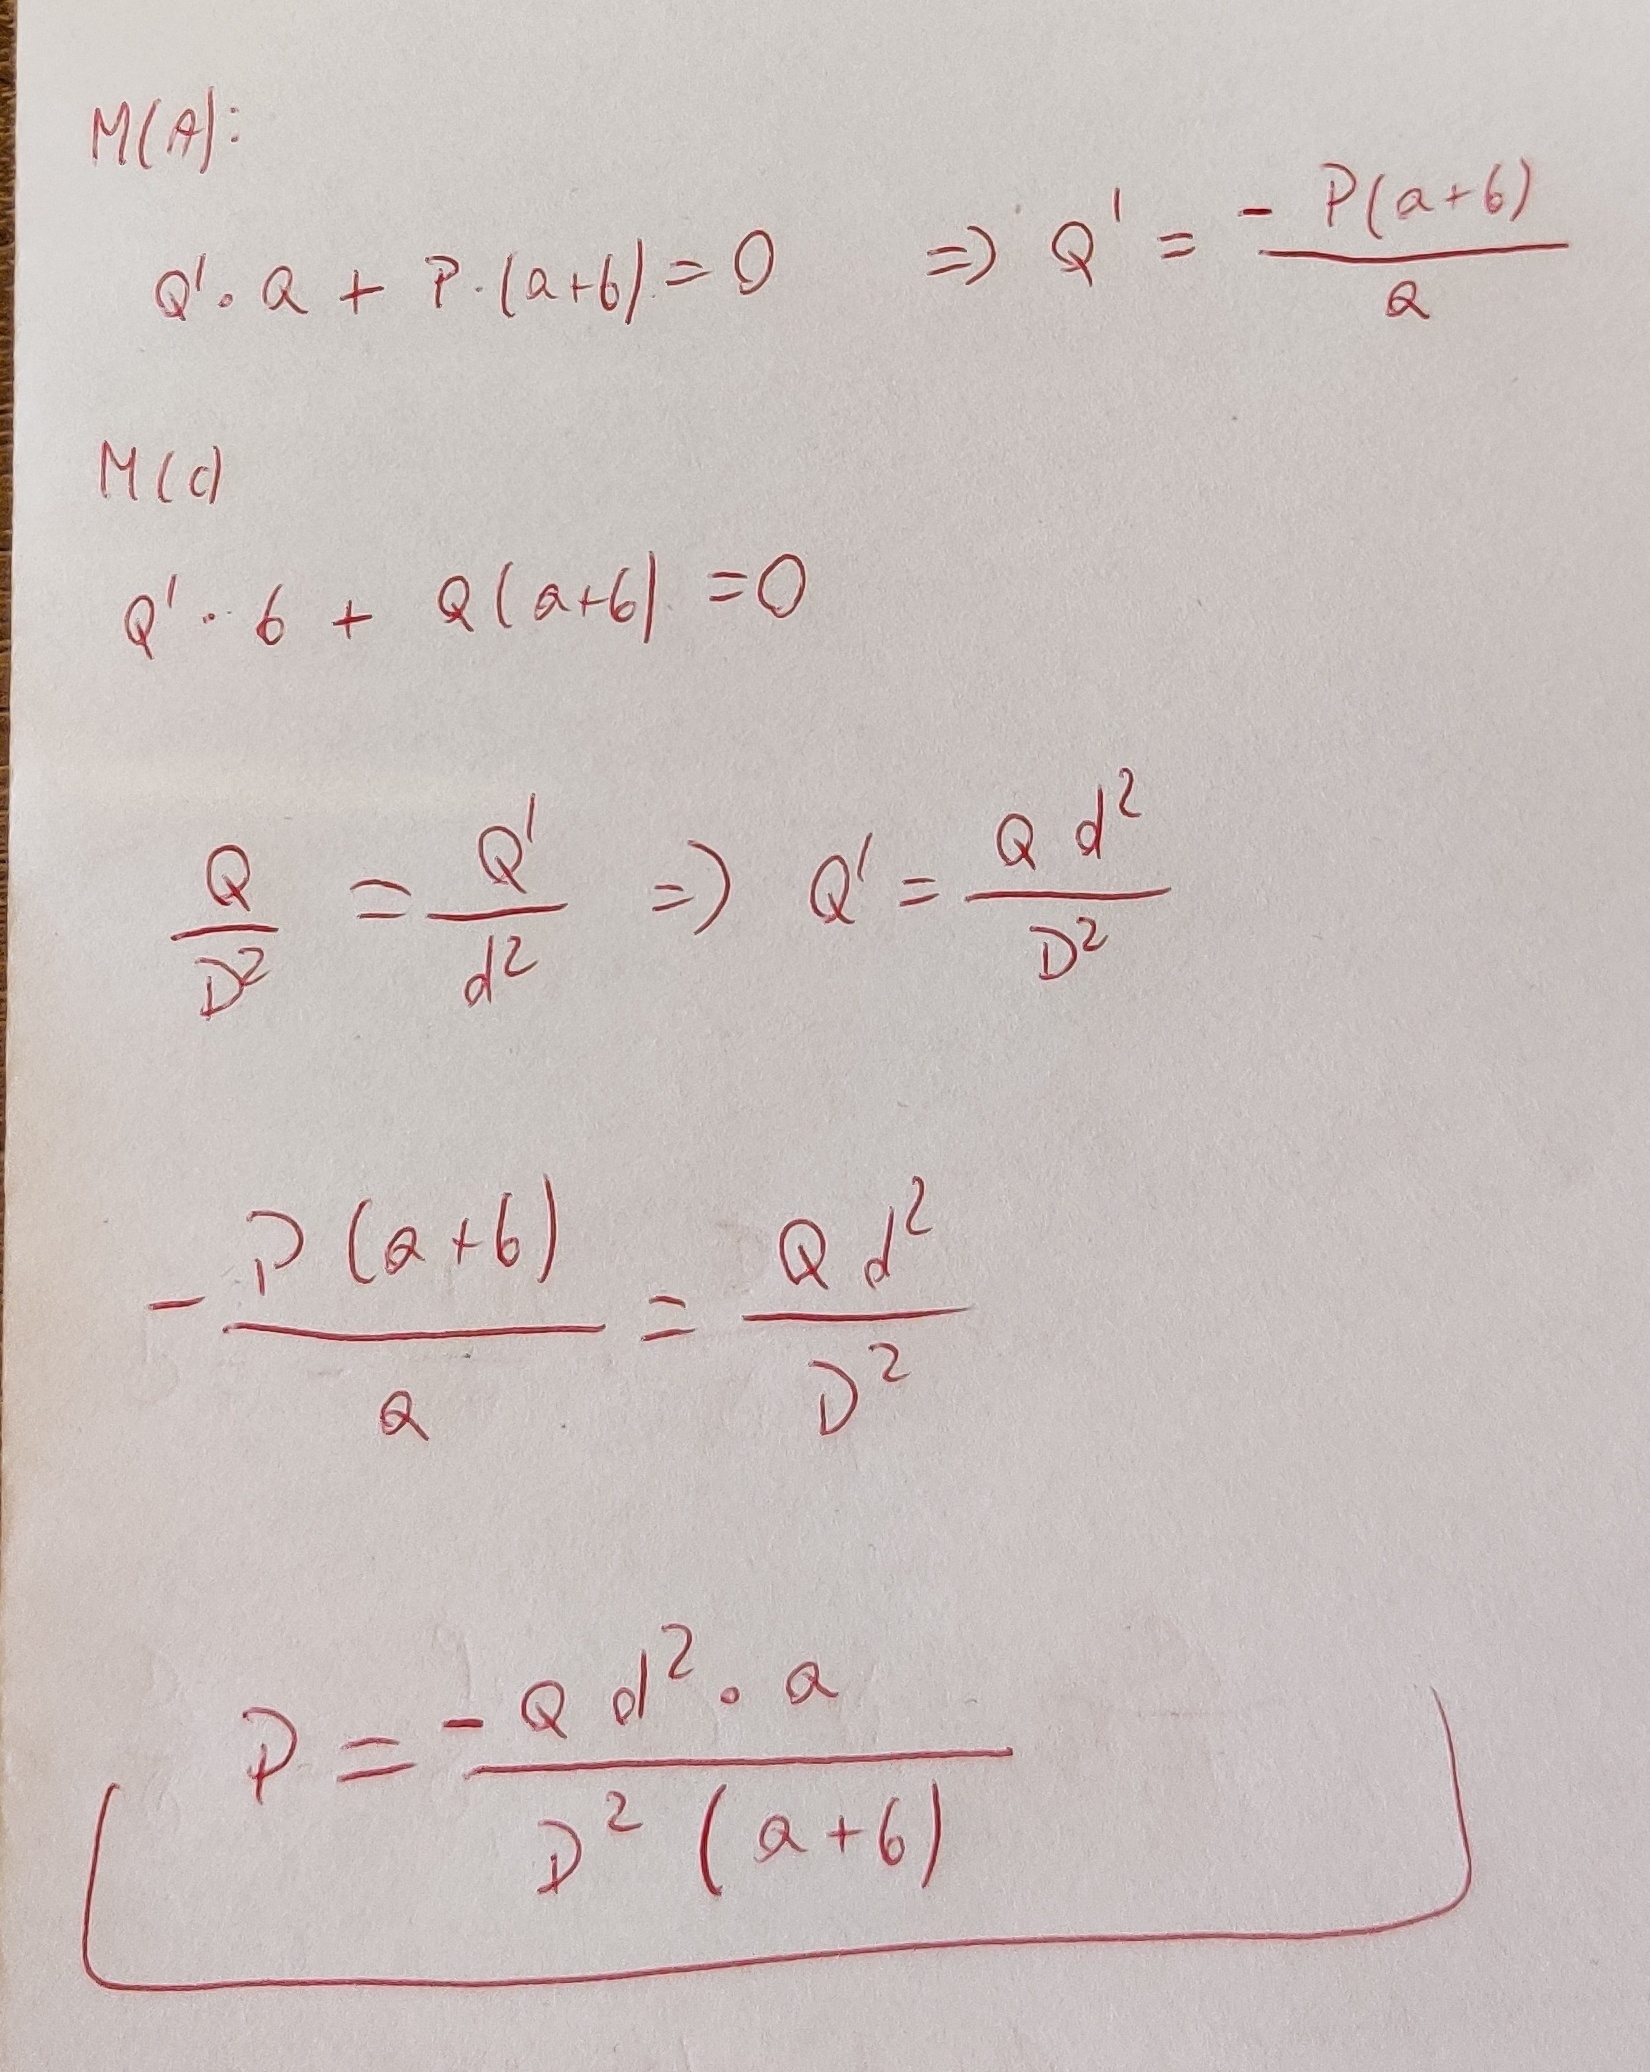 M(A):
Q'·a + P·(a+b) = 0 => Q' = -P(a+b)/a
M(c)
Q'·b + Q(a+b) = 0
Q/D² = Q'/d² => Q' = Q d²/D²
-P(a+b)/a = Q d²/D²
P = -Q d²·a/D²(a+b)